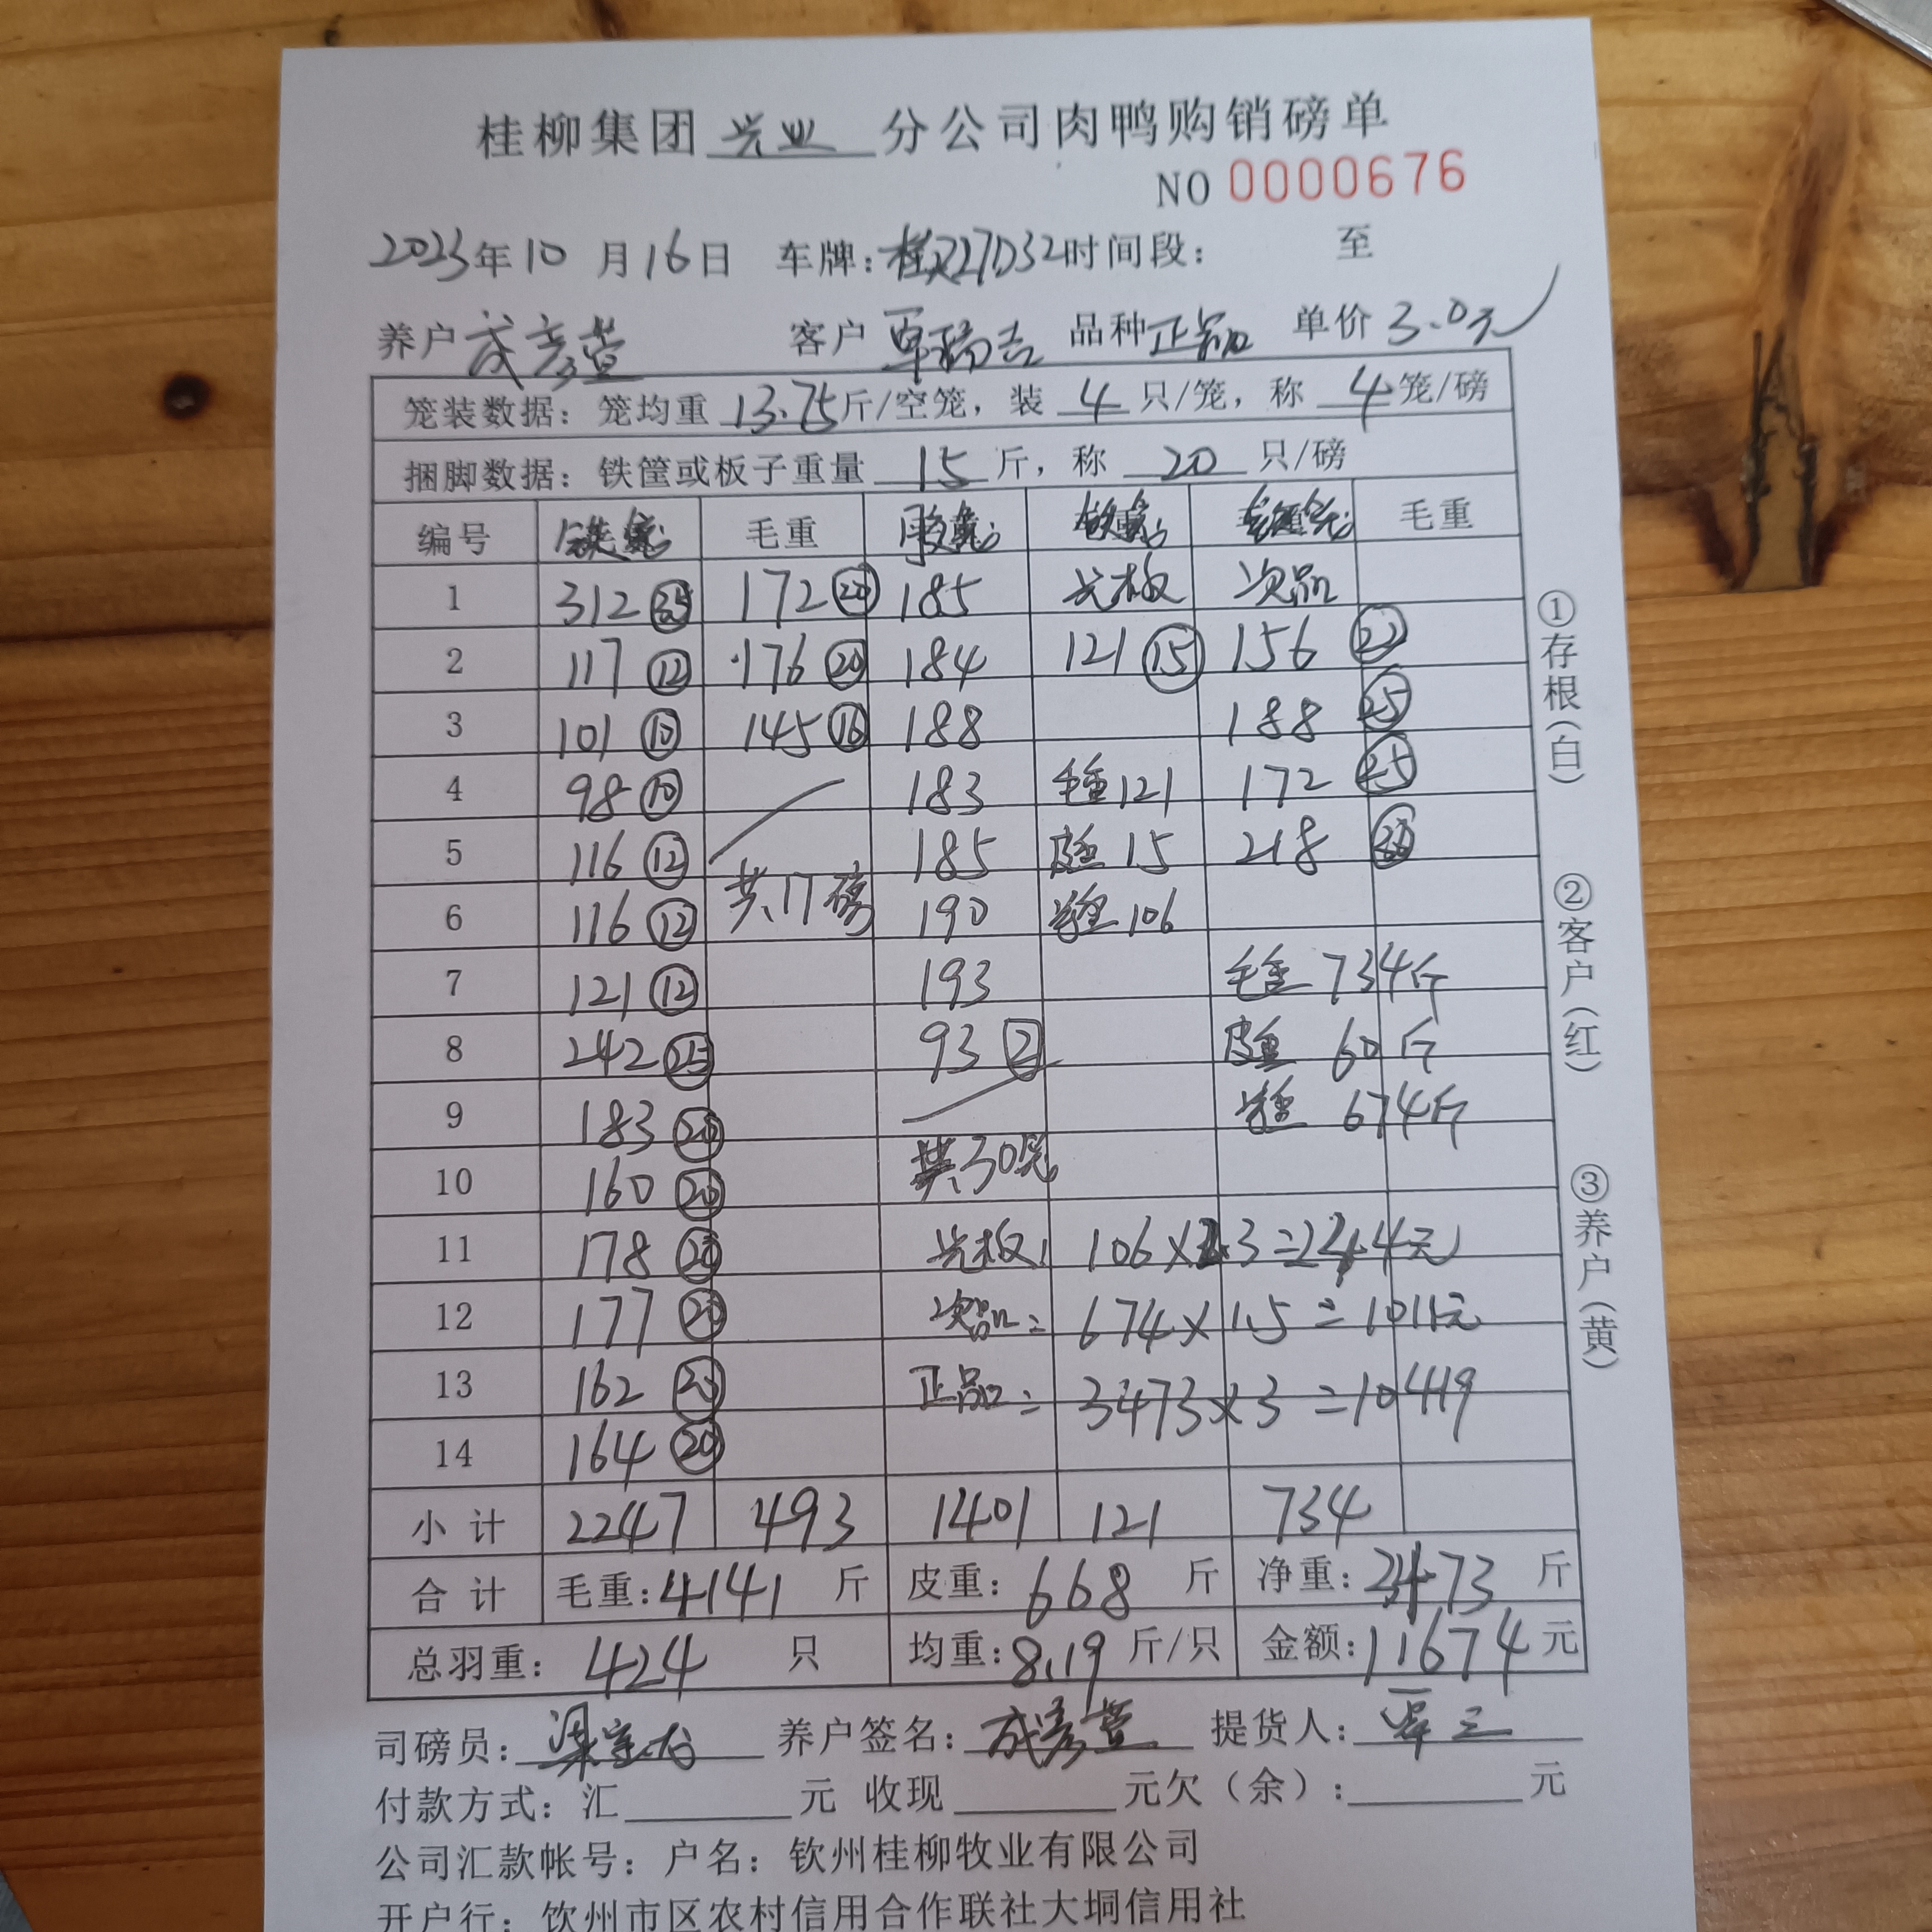 桂柳集团 兴业 分公司肉鸭购销磅单
NO 0000676
2023年10月16日 车牌:桂 27D32 时间段: 至
养户 成彦萱 客户 覃瑞吉 品种 正品 单价 3.0元
笼装数据: 笼均重 13.75 斤/空笼, 装 4 只/笼, 称 4 笼/磅
捆脚数据: 铁筐或板子重量 15 斤, 称 20 只/磅
编号 铁笼 毛重 胶笼 毛重
1 312 172 ⑳ 185 光板 次品
2 117 ⑫ 176 ⑳ 184 121 ⑮ 156 ㉒
3 101 ⑩ 145 ⑯ 188 188 ㉕
4 98 ⑩ 183 毛重121 172 ㉕
5 116 ⑫ 185 皮重 15 218
6 116 ⑫ 共17磅 190 净重 106
7 121 ⑫ 193 毛重 734斤
8 242 ㉕ 93 2 皮重 60斤
9 183 ⑳ 净重 674斤
10 160 ⑳ 共30笼
11 178 ⑳ 光板: 106× .3=24 .4元
12 177 ⑳ 次品= 674×1.5=1011元
13 162 ⑳ 正品= 3473×3=10419
14 164 ⑳
小计 2247 493 1401 121 734
合计 毛重:4141 斤 皮重: 668 斤 净重:3473 斤
总羽重: 424 只 均重:8.19 斤/只 金额:11674 元
司磅员: 养户签名: 成彦萱 提货人: 覃三
付款方式: 汇 元 收现 元欠(余): 元
公司汇款帐号: 户名: 钦州桂柳牧业有限公司
开户行: 钦州市区农村信用合作联社大垌信用社
①存根(白)
②客户(红)
③养户(黄)